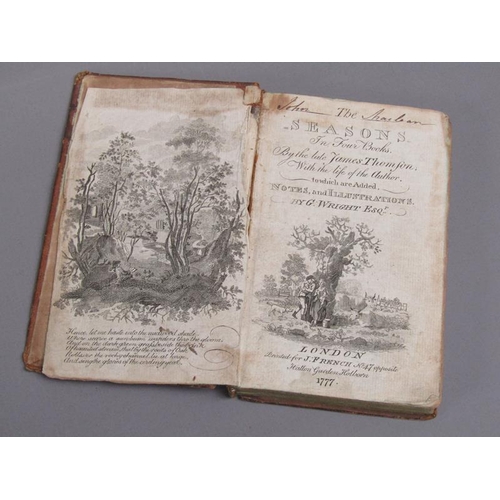 Hence, let me haste into the mid wood shade,
Where scarce a sun-beam wanders thro' the gloom;
And on the dark-green grass, beside the brink
Of haunted stream, that by the roots of Oak
Rolls o'er the rocky channel, lie at large,
And sing the glories of the circling year.
John Maclean
The
SEASONS
In Four Books.
By the late James Thomson.
With the life of the Author.
to which are Added
NOTES, and ILLUSTRATIONS.
BY G. WRIGHT ESQr.
LONDON
Printed for J. FRENCH No. 47 opposite
Hatton Garden Holborn
1777.